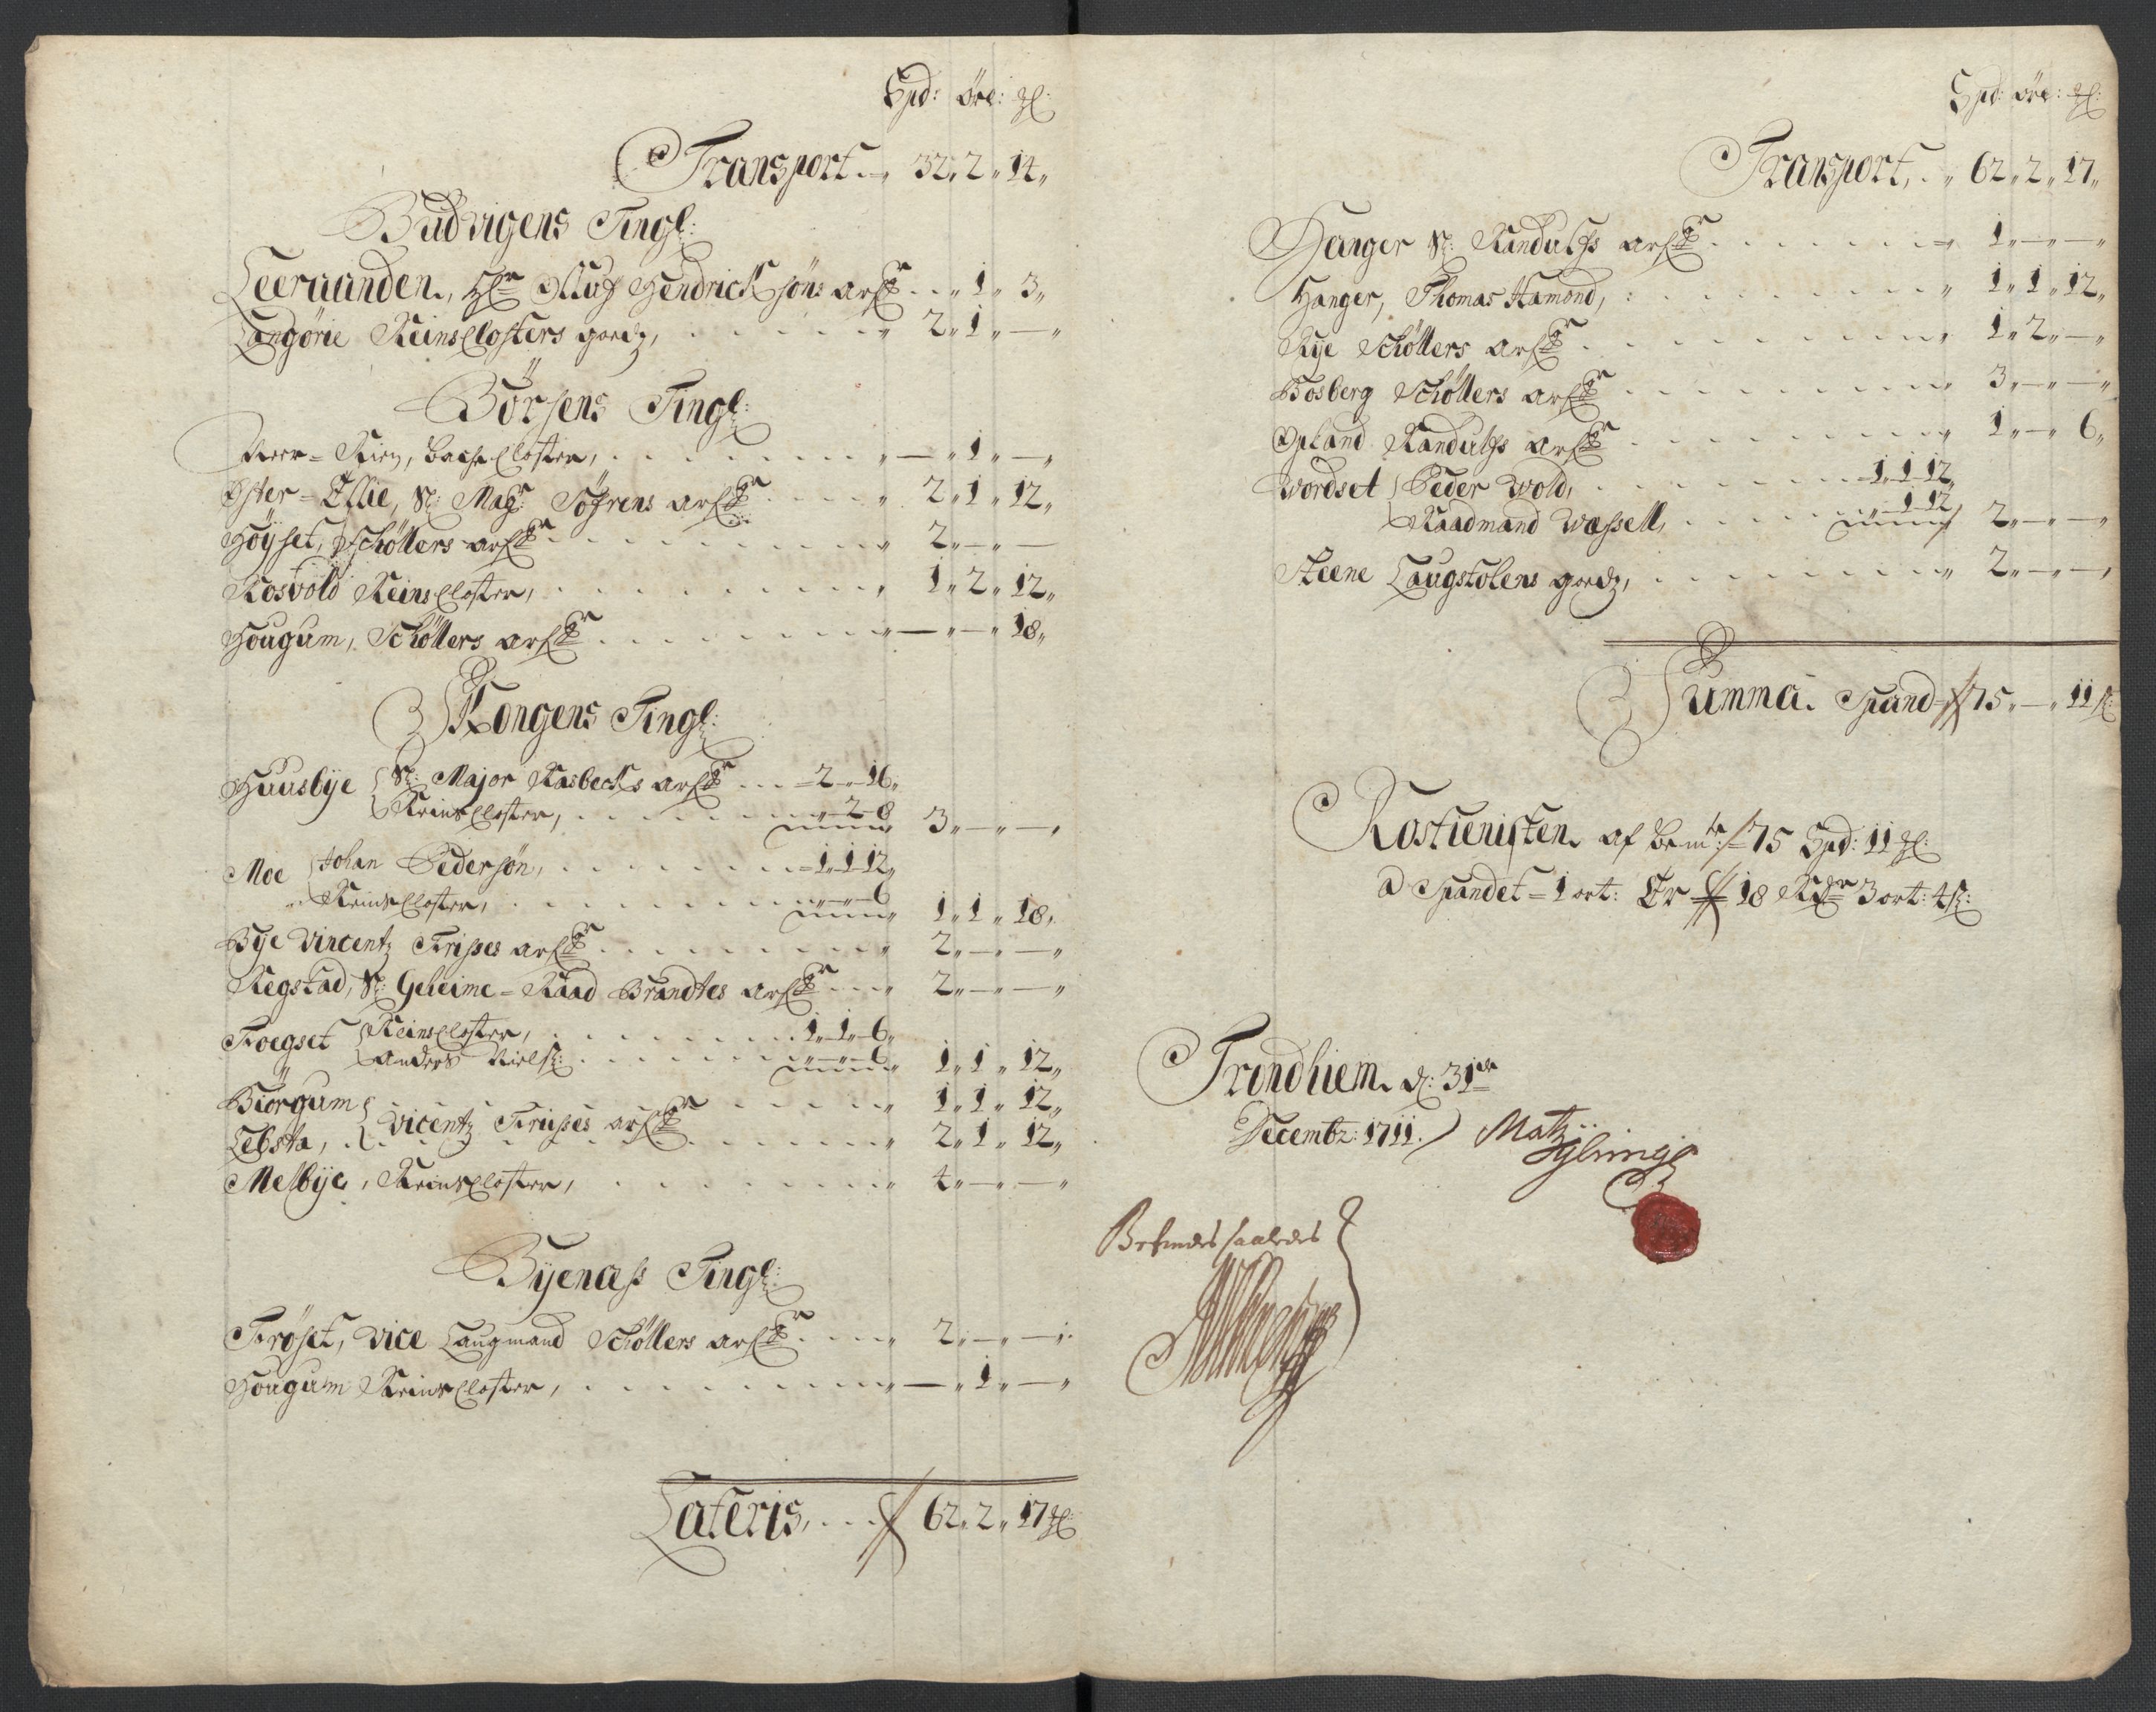 Spd: öre: gl:
Transport. „ 32„ 2„ 14„
Budvigens Tingl:
Leeraanden, Hr Oluf Hendrichsøns arf: „ 1„ 3„
Langörie Reins Closters godz, „ 2„ 1„ — „
Börsens Tingl:
Neer=Rien, Bache Closter, „ — „ 1„ — „
Öster=Eflie, Sl: Magr Söfrens arf: „ 2„ 1„ 12„
Höyset, Schöllers arf: „ 2„ — „ —
Rosvold Reins Closter, „ 1„ 2„ 12„
Hougum, Schöllers arf: „ — „ — „ 18„
Kongens Tingl:
Huusbye Sl: Major Kasbecks arf: 2„ 16„
Reins Closter, „ 2„ 8 3„ — „ — „
Moe Johan Pedersøn, 1„ 1„ 12„
Reins Closter, „ 6 1„ 1„ 18„
Bye Vincentz Trises arf: „ 2„ — „ — „
Regstad, Sl: Geheime=Raad Brandtes arf: „ 2„ — „ — „
Foegset Reins Closter, 1„ 1„ 6„
Anders Niels: „ 6 1„ 1„ 12„
Biörgum „ 1„ 1„ 12„
Vicentz Trises arf:
Lebsta, „ 2„ 1„ 12„
Melbye, Reins Closter, „ 4„ — „ — „
Byenæss Tingl:
Fröset, Vice Laugmand Schöllers arf: „ 2„ — „ — „
Hougum Reins Closter, „ — „ 1„ — „
Lateris, 62„ 2„ 17 gl:
Spd: öre: gl:
Transport, „ 62„ 2„ 17„
Hanger Sl: Randulfs arf: „ 1„ — „ — „
Hanger, Thomas Hamond, „ 1„ 1„ 12„
Rye Schöllers arf: „ 1„ 2„ — „
Bosberg Schöllers arf: „ 3„ — „ — „
Opland Randulfs arf: „ 1„ — „ 6„
Wordset Peder Wold, 1„ 1„ 12„
Raadmand Wessell, „ 1„ 12 2„ — „ — „
Steene Laugstolens godz, „ 2„ — „ — „
Summa. Spand 75„ — „ 11 gl:
Rostienisten af bemte 75 Spd: 11 gl:
a Spandet = 1 ort: Er 18 Rdr 3 ort: 4 s:
Trondhiem d: 31de
Decembr: 1711.
Matz
Befindes saaledes